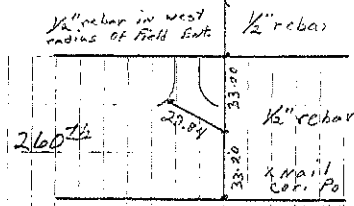 1/2" rebar in west
radius of Field Ent.
1/2" rebar
33.00
23.84
1/2" rebar
260th
33.20
x nail
cor. Po